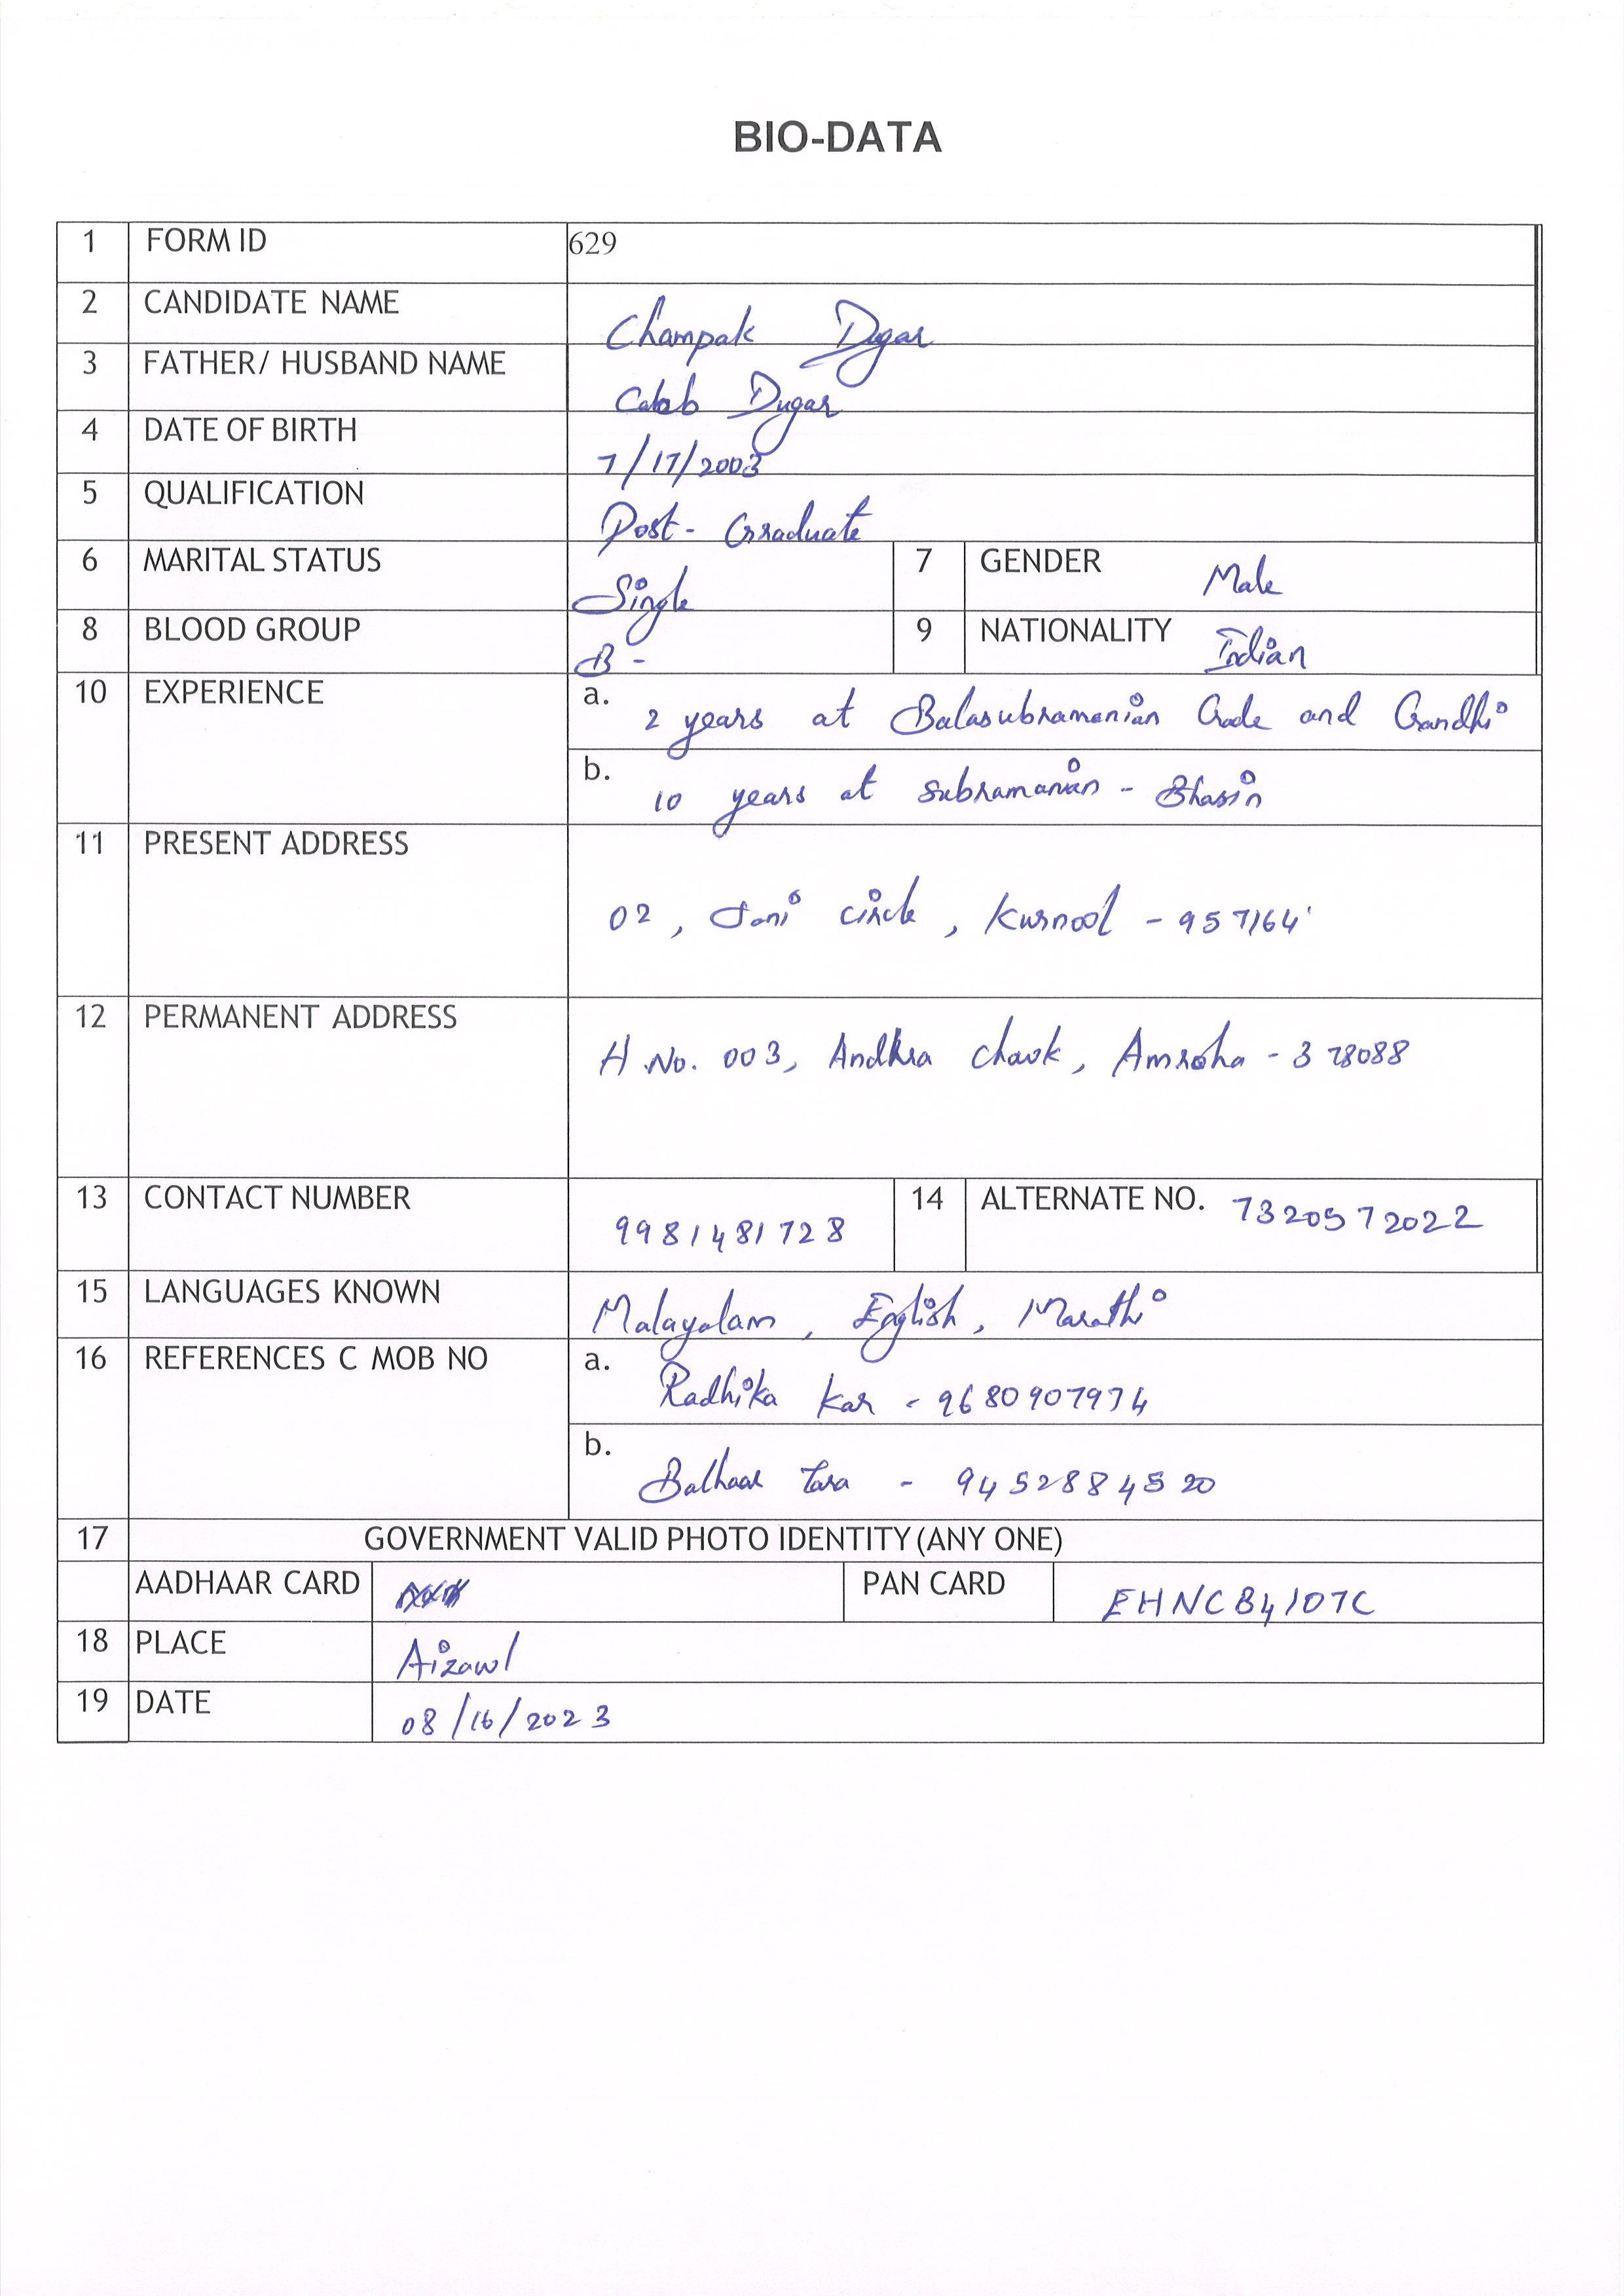 BIO-DATA
1 FORM ID 629
2 CANDIDATE NAME Champak Dugar
3 FATHER/ HUSBAND NAME Caleb Dugar
4 DATE OF BIRTH 7/17/2003
5 QUALIFICATION Post- Graduate
6 MARITAL STATUS Single 7 GENDER Male
8 BLOOD GROUP B - 9 NATIONALITY Indian
10 EXPERIENCE a. 2 years at Balasubramanian Gade and Gandhi
b. 10 years at Subramanian - Bhasin
11 PRESENT ADDRESS
02, Soni circle, Kurnool - 957164
12 PERMANENT ADDRESS
H.No. 003, Andhra Chowk, Amroha - 378088
13 CONTACT NUMBER 9981481728 14 ALTERNATE NO. 7320572022
15 LANGUAGES KNOWN Malayalam, English, Marathi
16 REFERENCES C MOB NO a. Radhika Kar - 9680907974
b. - 9452884520
17 GOVERNMENT VALID PHOTO IDENTITY (ANY ONE)
AADHAAR CARD PAN CARD EHNCB4107C
18 PLACE Aizawl
19 DATE 08/16/2023